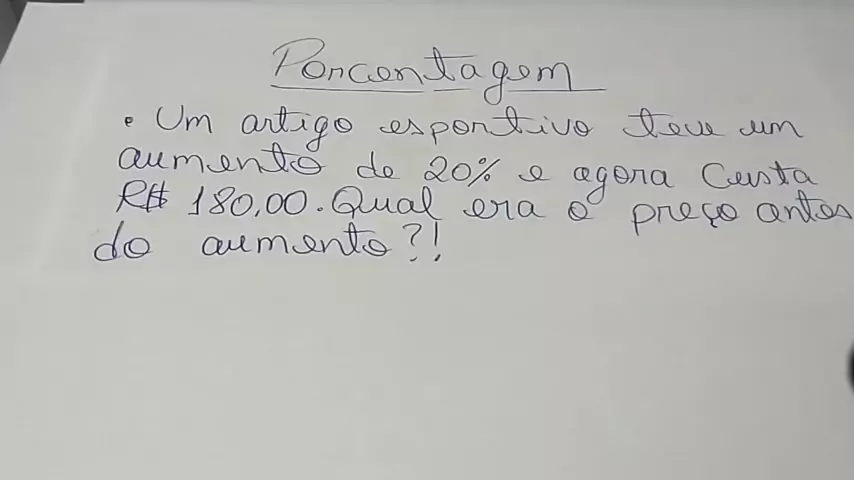 Porcentagem
• Um artigo esportivo teve um
aumento de 20% e agora Custa
R$ 180,00. Qual era o preço antes
do aumento?!